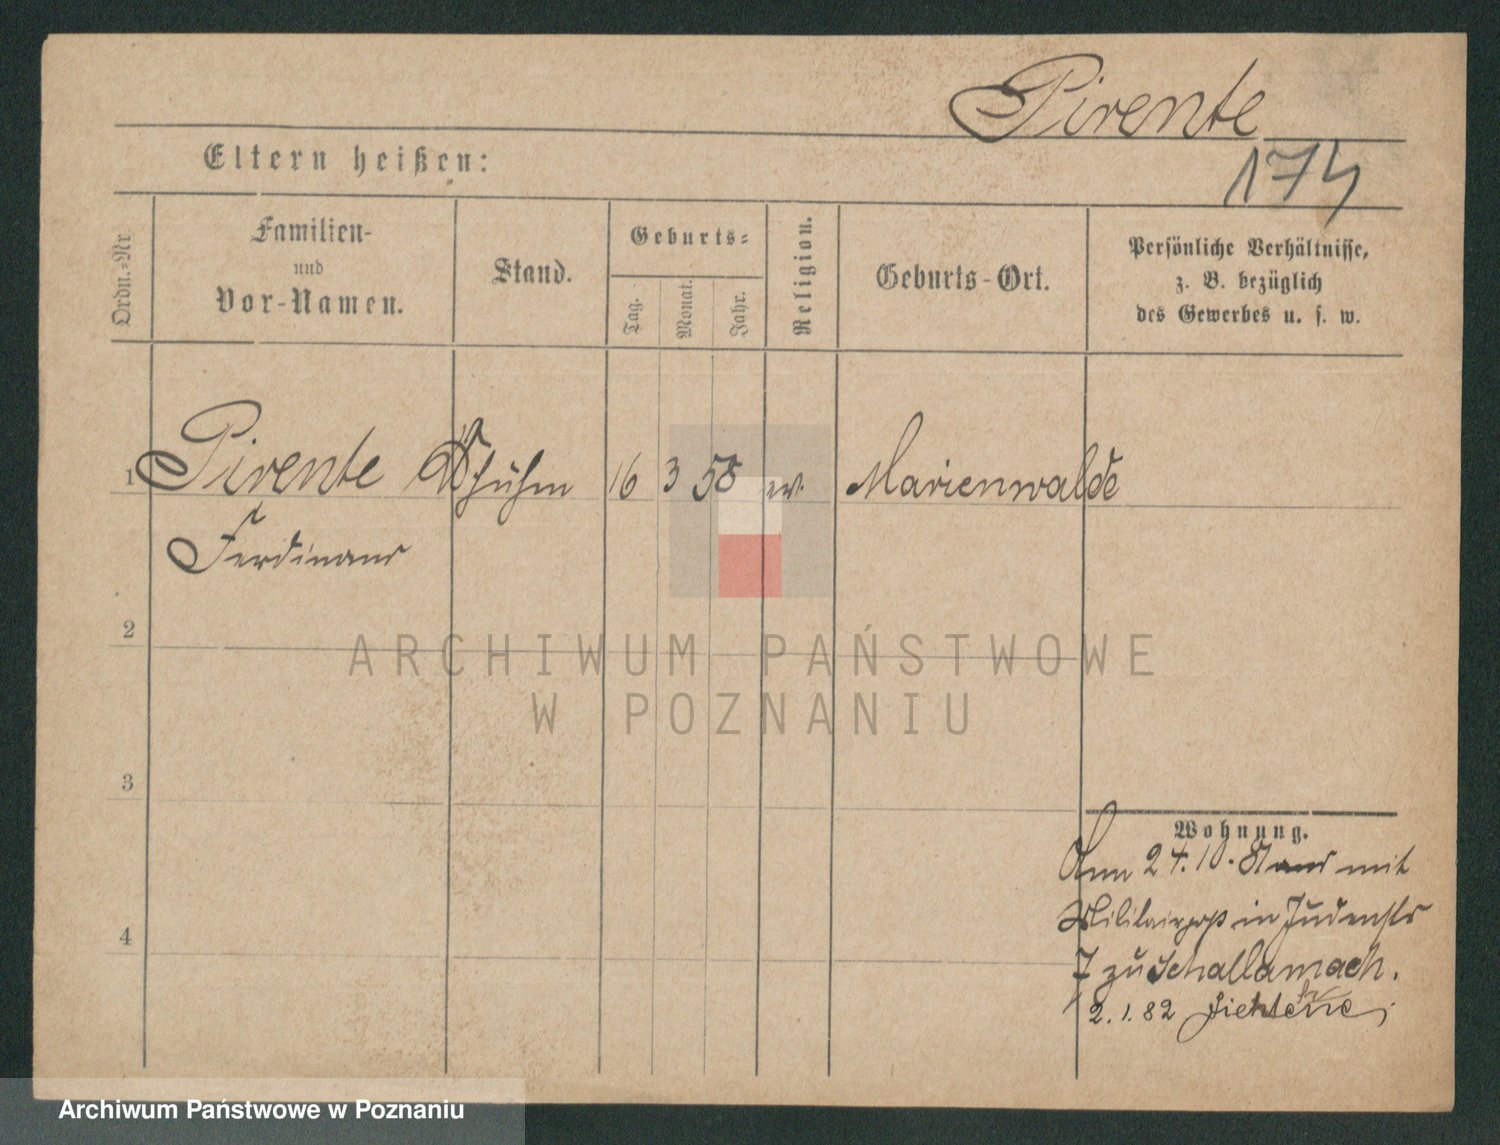 Pirente
174
Eltern heißen:
Ordn.-Nr
Familien-
und
Vor-Namen.
Stand.
Geburts-
Tag.
Monat.
Jahr.
Religion.
Geburts-Ort.
Persönliche Verhältnisse,
z. B. bezüglich
des Gewerbes u. s. w.
1
Pirente
16 3 58 ev. Marienwalde
Ferdinand
2
ARCHIWUM PAŃSTWOWE
W POZNANIU
3
Wohnung.
24.10. mit
in Judenstr
7 zu Schallamach.
2.1.82
4
Archiwum Państwowe w Poznaniu